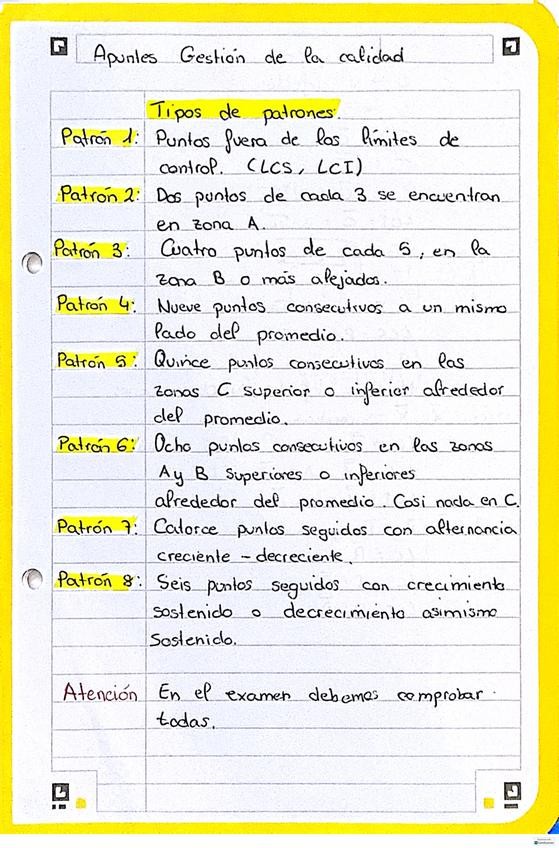 Apuntes Gestión de la calidad
Tipos de patrones.
Patrón 1: Puntos fuera de los límites de
control. (LCS, LCI)
Patrón 2: Dos puntos de cada 3 se encuentran
en zona A.
Patrón 3: Cuatro puntos de cada 5, en la
zona B o más alejados.
Patrón 4: Nueve puntos consecutivos a un mismo
lado del promedio.
Patrón 5: Quince puntos consecutivos en las
zonas C superior o inferior alrededor
del promedio.
Patrón 6: Ocho puntos consecutivos en las zonas
A y B superiores o inferiores
alrededor del promedio. Casi nada en C.
Patrón 7: Catorce puntos seguidos con alternancia
creciente - decreciente.
Patrón 8: Seis puntos seguidos con crecimiento
sostenido o decrecimiento asimismo
sostenido.
Atención En el examen debemos comprobar
todas.